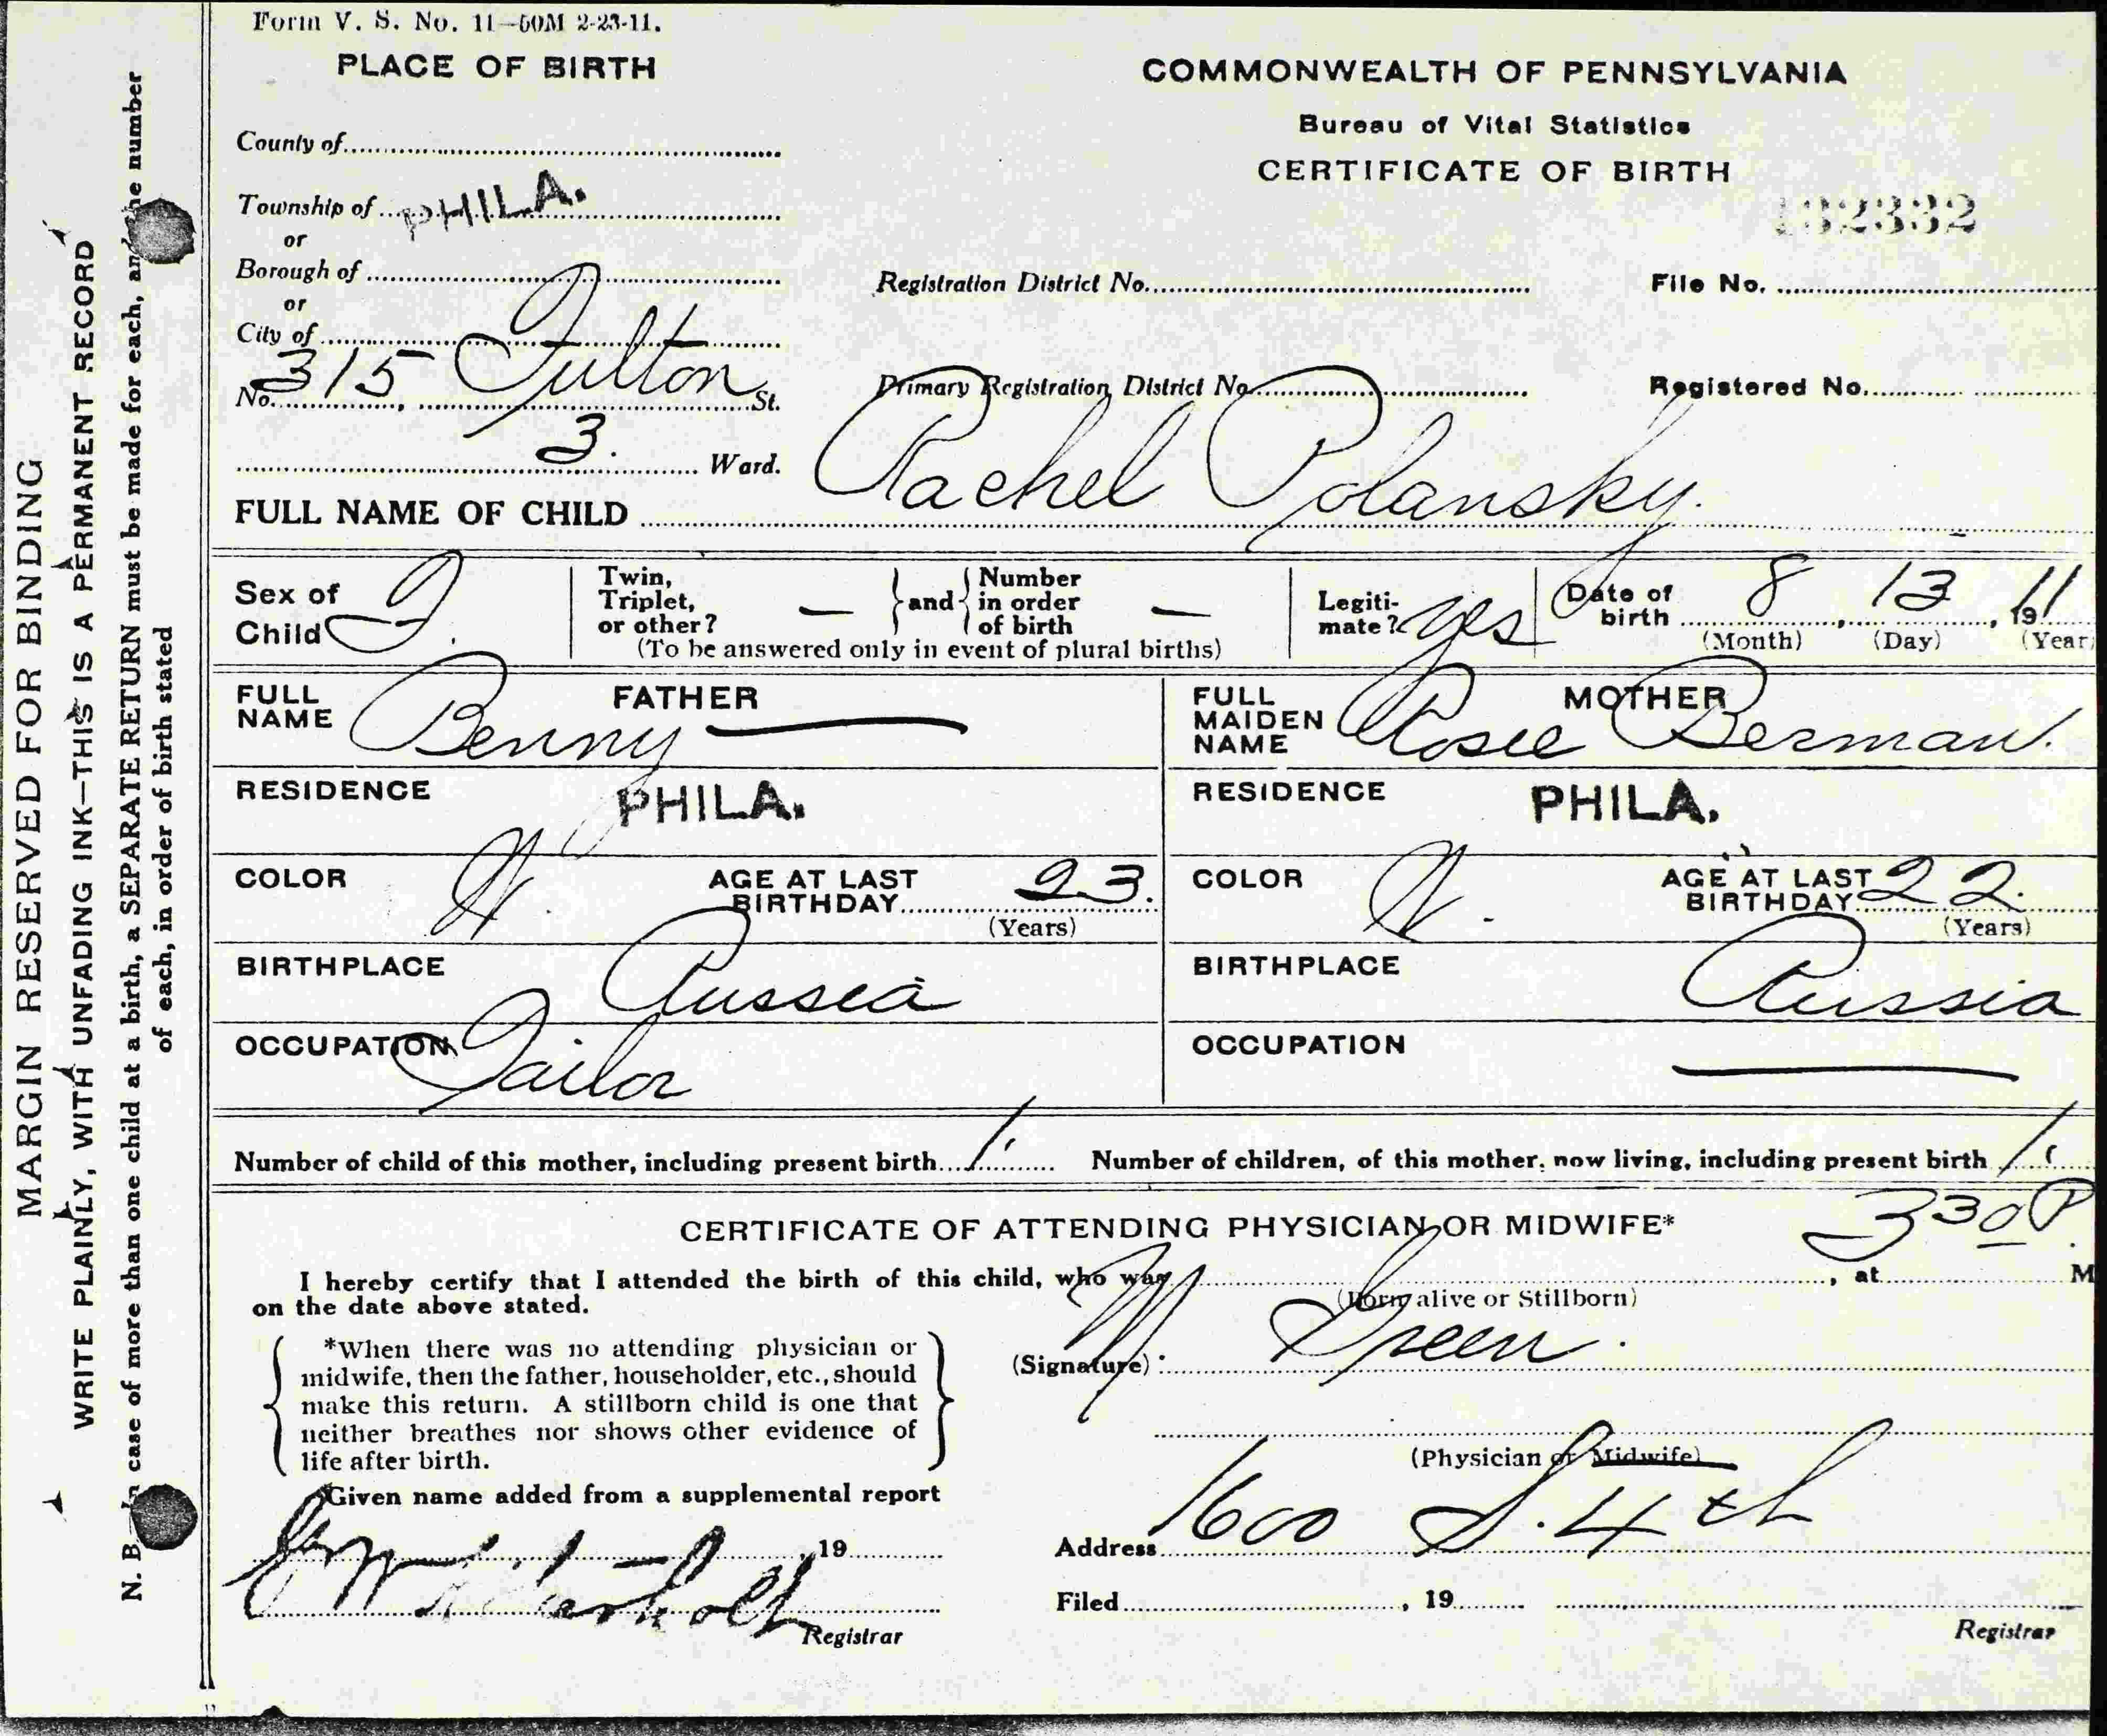 Form V. S. No. 11—50M 2-23-11.
PLACE OF BIRTH
County of
Township of PHILA.
or
Borough of
or
City of
No. 315 Fulton St.
3. Ward.
COMMONWEALTH OF PENNSYLVANIA
Bureau of Vital Statistics
CERTIFICATE OF BIRTH
132332
Registration District No. File No.
Primary Registration District No. Registered No.
FULL NAME OF CHILD Rachel Polansky.
Sex of Child F.
Twin, Triplet, or other? — and Number in order of birth —
(To be answered only in event of plural births)
Legiti-mate? yes
Date of birth 8, 13, 1911
(Month) (Day) (Year)
FATHER
FULL NAME Benny —
RESIDENCE PHILA.
COLOR W. AGE AT LAST BIRTHDAY 23.
(Years)
BIRTHPLACE Russia
OCCUPATION Tailor
MOTHER
FULL MAIDEN NAME Rosie Berman.
RESIDENCE PHILA.
COLOR W. AGE AT LAST BIRTHDAY 22.
(Years)
BIRTHPLACE Russia
OCCUPATION —
Number of child of this mother, including present birth 1. Number of children, of this mother, now living, including present birth 1.
CERTIFICATE OF ATTENDING PHYSICIAN OR MIDWIFE*
I hereby certify that I attended the birth of this child, who was, at 330 P. M
on the date above stated. (Born alive or Stillborn)
*When there was no attending physician or
midwife, then the father, householder, etc., should
make this return. A stillborn child is one that
neither breathes nor shows other evidence of
life after birth.
(Signature) Green.
(Physician or Midwife)
Given name added from a supplemental report
19
Registrar
Address 1600 S. 4th
Filed, 19
Registrar
MARGIN RESERVED FOR BINDING
WRITE PLAINLY, WITH UNFADING INK—THIS IS A PERMANENT RECORD
N. B. In case of more than one child at a birth, a SEPARATE RETURN must be made for each, and the number
of each, in order of birth stated